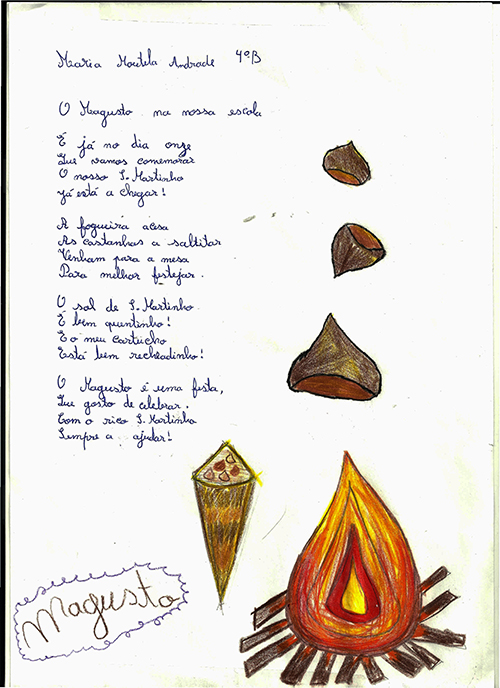 Maria Moutela Andrade 4ºB
O Magusto na nossa escola
É já no dia onze
Que vamos comemorar
O nosso S. Martinho
Já está a chegar!
A fogueira acesa
As castanhas a saltitar
Venham para a mesa
Para melhor festejar.
O sol de S. Martinho
É bem quentinho!
E o meu cartucho
Está bem recheadinho!
O Magusto é uma festa,
Que gosto de celebrar.
Com o rico S. Martinho
Sempre a ajudar!
Magusto